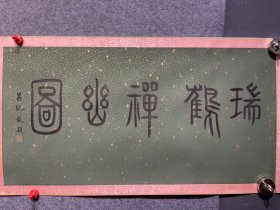 瑞鶴禪幽圖